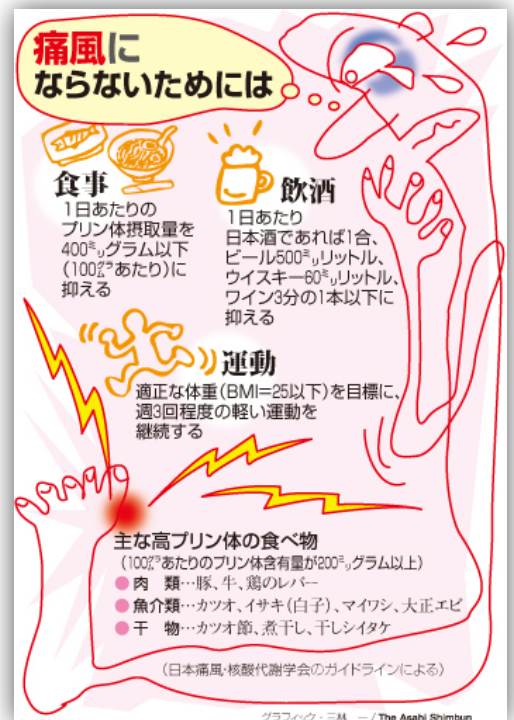 痛風に
ならないためには
食事
1日あたりの
プリン体摂取量を
400㍉グラム以下
(100㌘あたり)に
抑える
飲酒
1日あたり
日本酒であれば1合、
ビール500㍉リットル、
ウイスキー60㍉リットル、
ワイン3分の1本以下に
抑える
運動
適正な体重(BMI=25以下)を目標に、
週3回程度の軽い運動を
継続する
主な高プリン体の食べ物
(100㌘あたりのプリン体含有量が200㍉グラム以上)
●肉 類…豚、牛、鶏のレバー
●魚介類…カツオ、イサキ(白子)、マイワシ、大正エビ
●干 物…カツオ節、煮干し、干しシイタケ
(日本痛風・核酸代謝学会のガイドラインによる)
グラフィック・三林 一 / The Asahi Shimbun